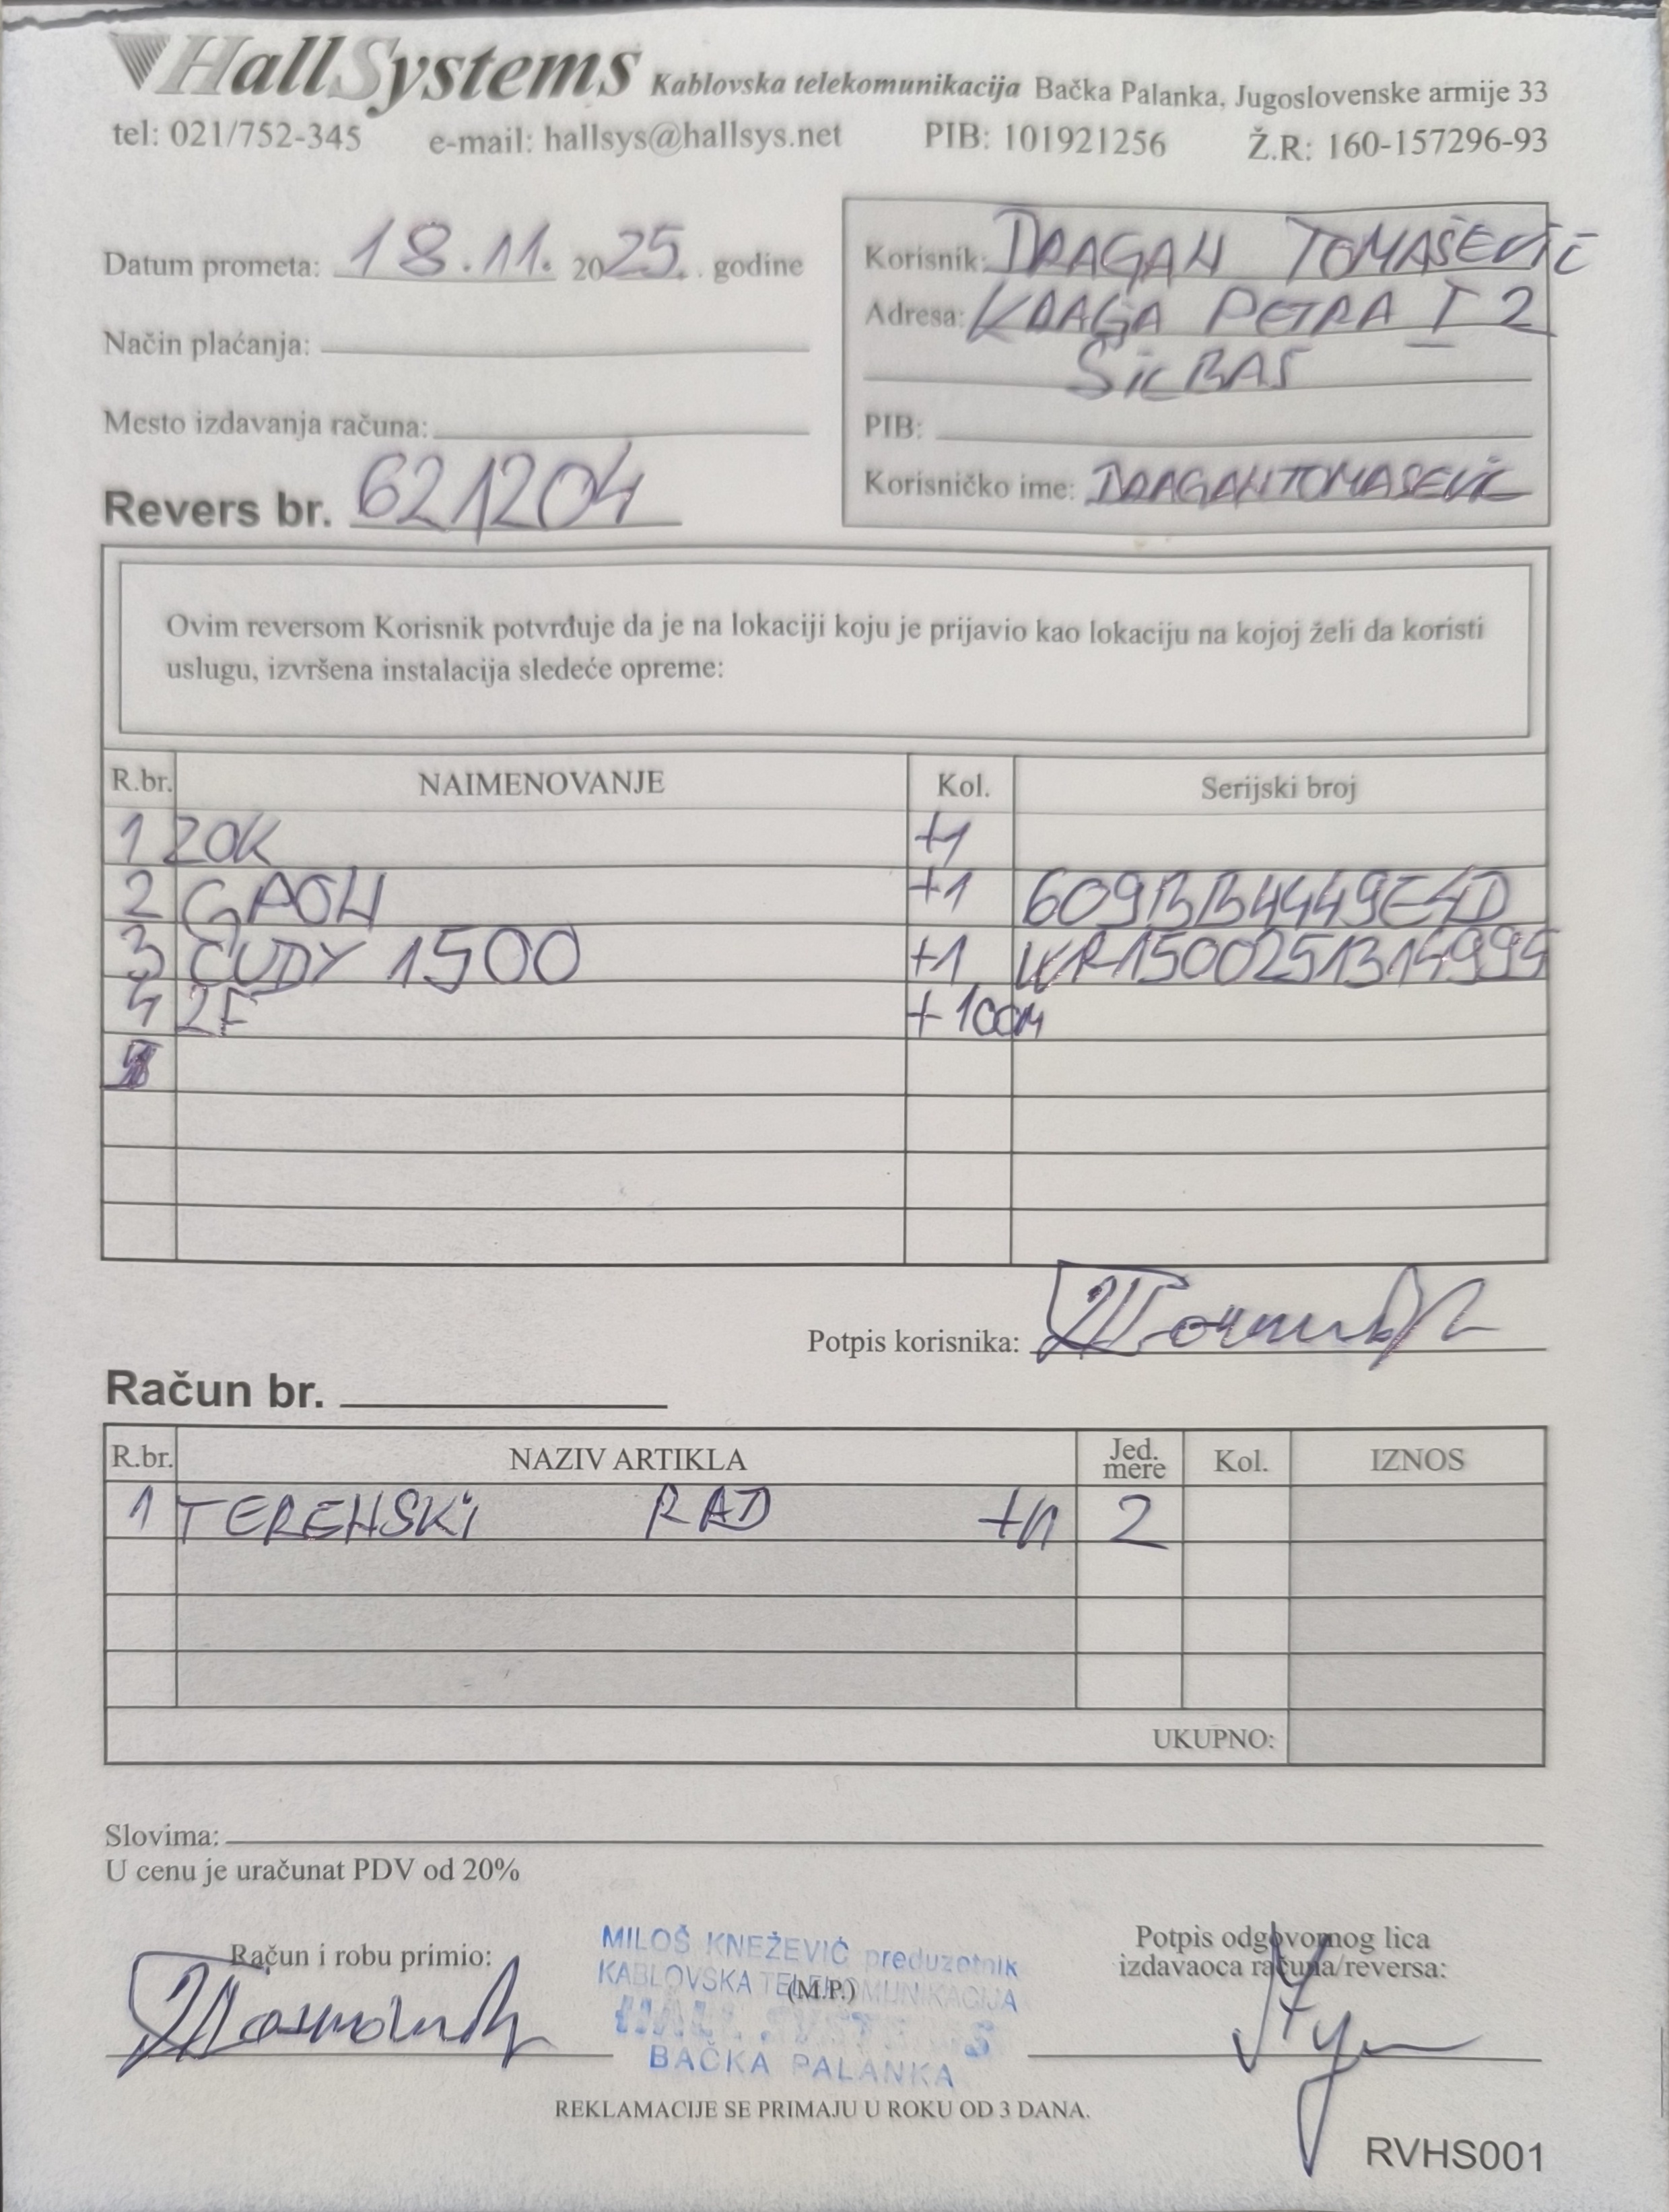 HallSystems Kablovska telekomunikacija Bačka Palanka, Jugoslovenske armije 33
tel: 021/752-345 e-mail: hallsys@hallsys.net PIB: 101921256 Ž.R: 160-157296-93
Datum prometa: 18.11. 2025. godine
Način plaćanja:
Mesto izdavanja računa:
Revers br. 621204
Korisnik: DRAGAN TOMAŠEVIĆ
Adresa: KRAGA PETRA I 2
SILBAŠ
PIB:
Korisničko ime: DRAGANTOMASEVIC
Ovim reversom Korisnik potvrđuje da je na lokaciji koju je prijavio kao lokaciju na kojoj želi da koristi
uslugu, izvršena instalacija sledeće opreme:
R.br. NAIMENOVANJE Kol. Serijski broj
1 ZOK +1
2 GPON +1 609BB4449E4D
3 CUDY 1500 +1 WR1500251314995
4 2F +100M
Potpis korisnika:
Račun br.
R.br. NAZIV ARTIKLA Jed. mere Kol. IZNOS
1 TERENSKI RAD +1 2
UKUPNO:
Slovima:
U cenu je uračunat PDV od 20%
Račun i robu primio:
MILOŠ KNEŽEVIĆ preduzetnik
KABLOVSKA TELEKOMUNIKACIJA
(M.P.)
HALL SYSTEMS
BAČKA PALANKA
Potpis odgovornog lica
izdavaoca računa/reversa:
REKLAMACIJE SE PRIMAJU U ROKU OD 3 DANA.
RVHS001